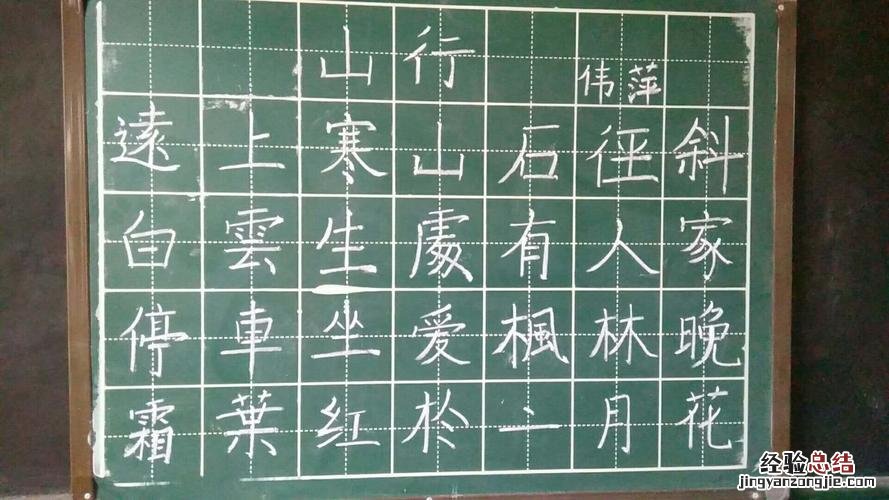 山行 伟萍
遠上寒山石徑斜
白雲生處有人家
停車坐愛楓林晚
霜葉红於二月花
经验总结
jingyanzongjie.com